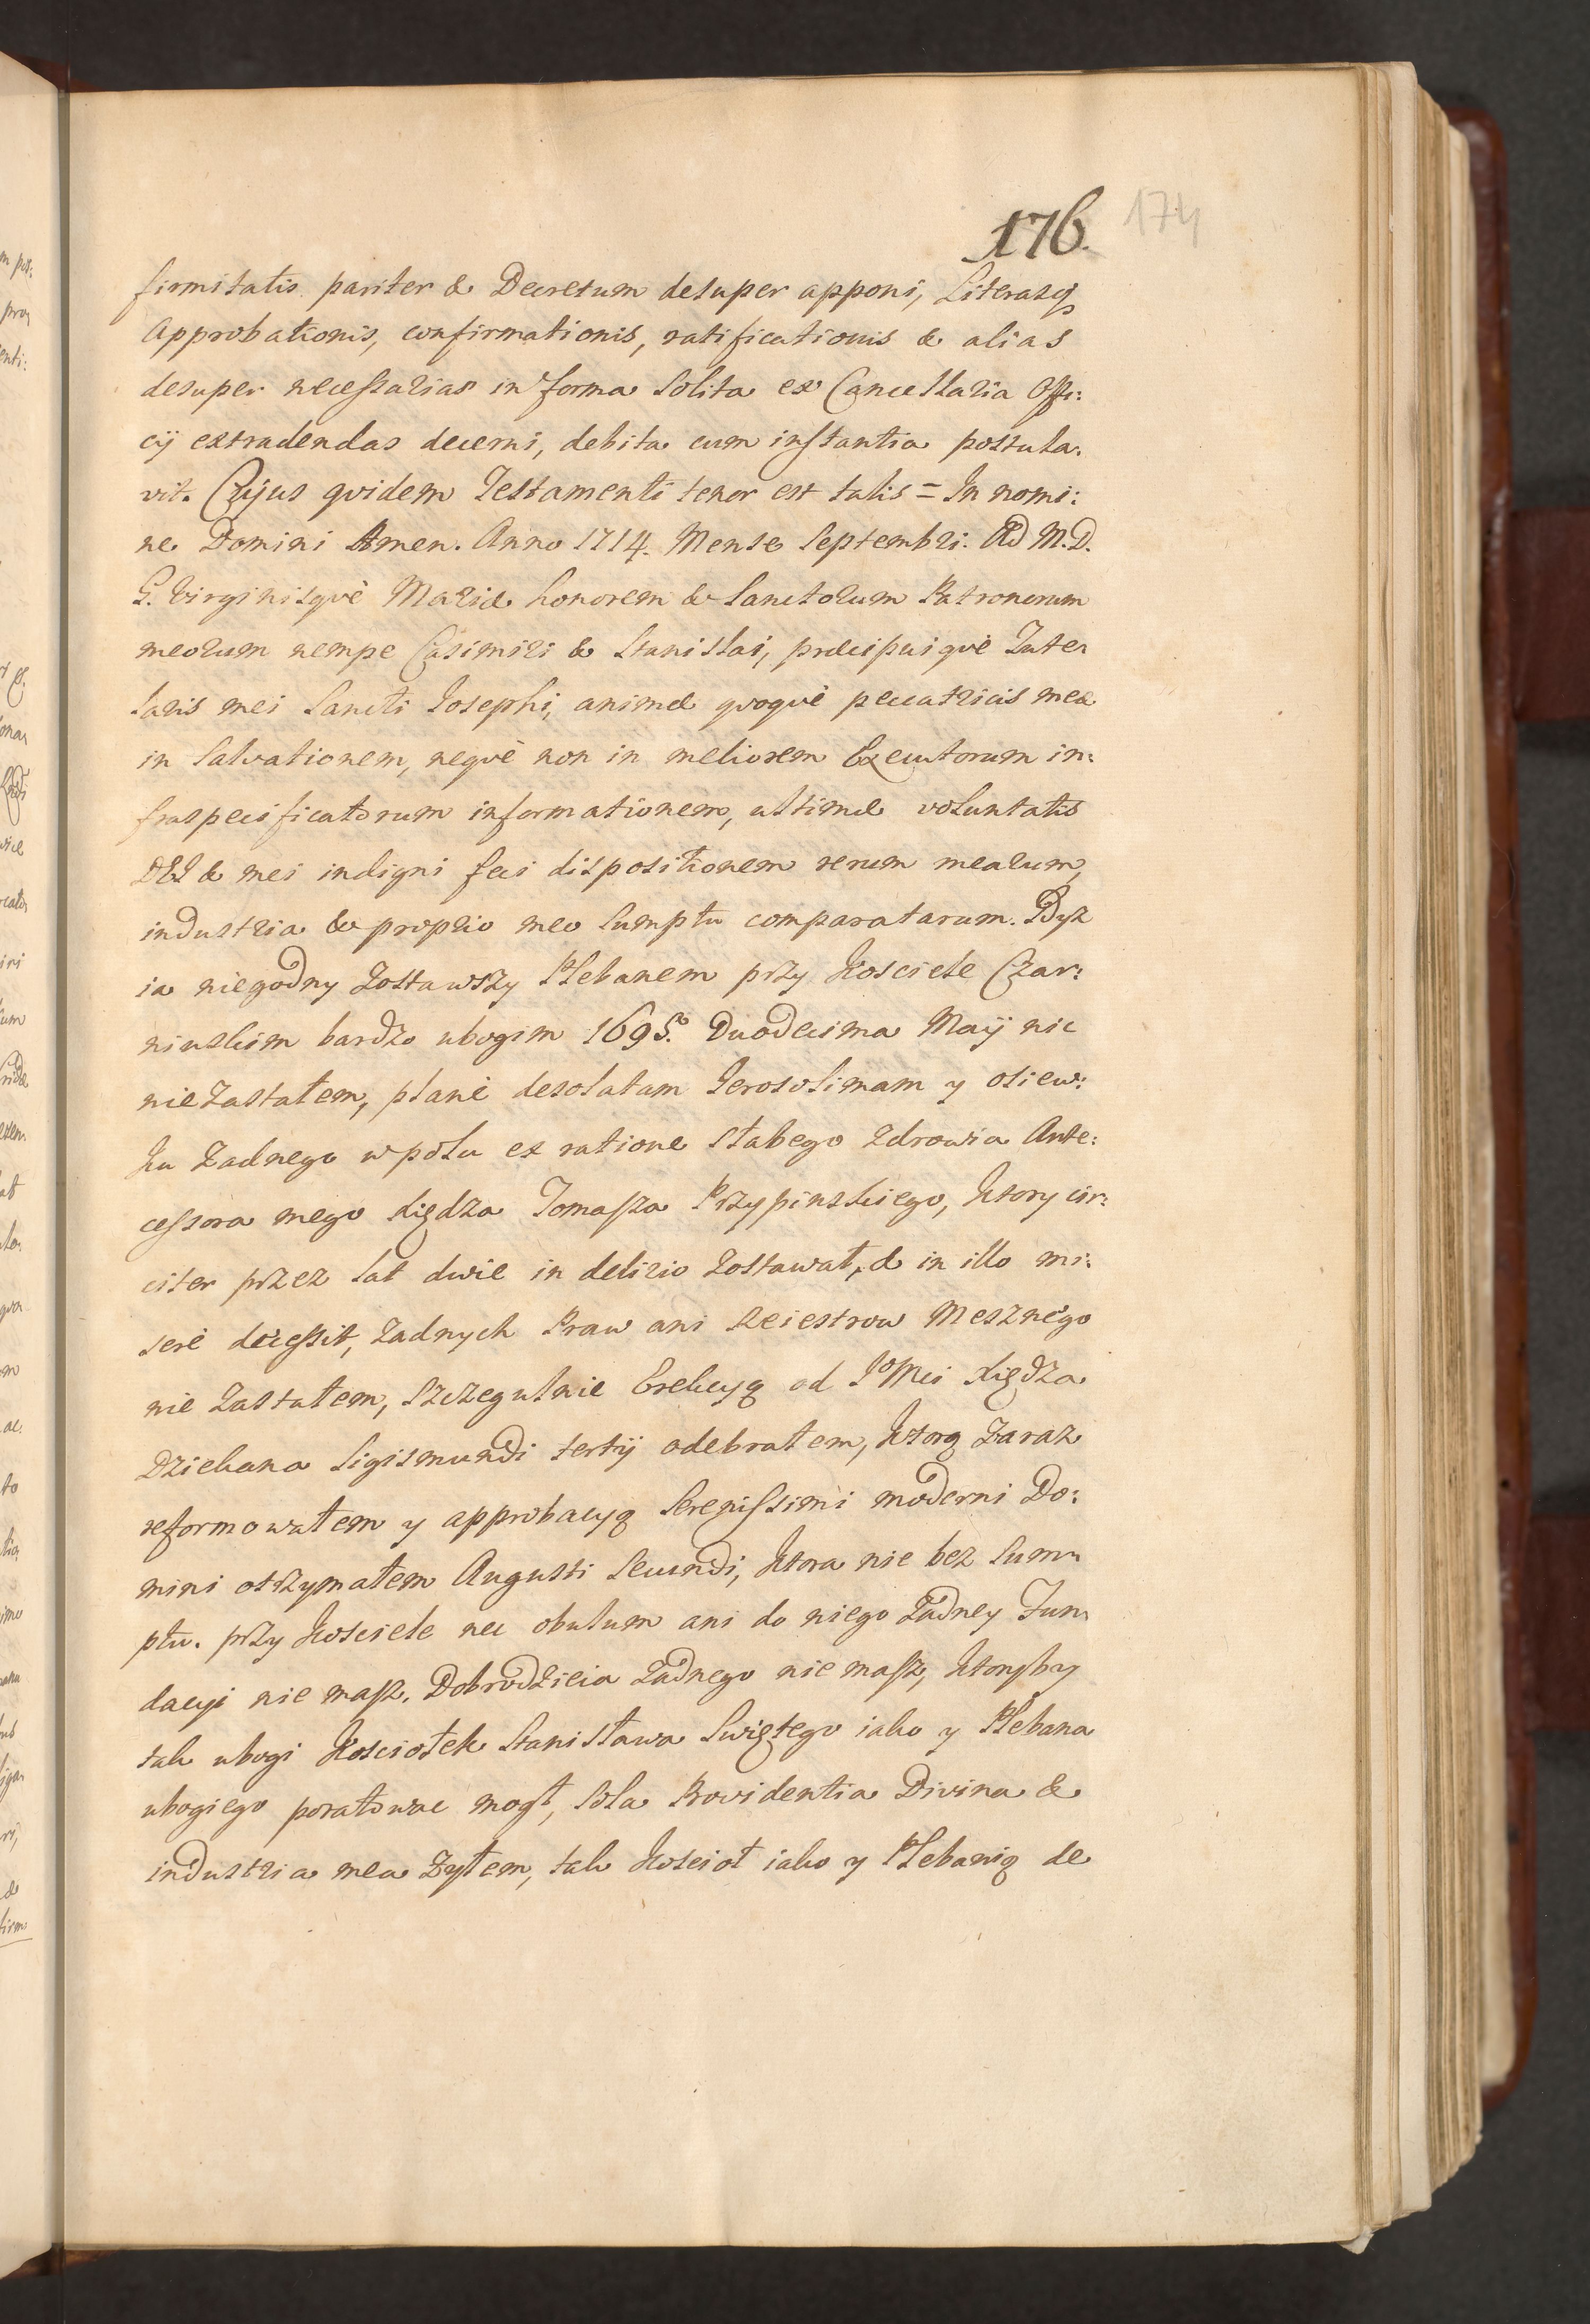 176. 174
firmitatis pariter & Decretum desuper apponi, Literasq;
Approbationis, confirmationis, ratificationis & alias
desuper necessarias in forma solita ex Cancellaria Offi:
cij extradendas decerni, debita cum instantia postula:
vit. Cujus qvidem Testamenti tenor est talis = In nomi:
ne Domini Amen. Anno 1714. Mense Septembri. Ad M. D.
G. Virginisqvè Mariæ honorem & Sanctorum Patronorum
meorum nempe Casimiri & Stanislai, præcipuiqvè Tute:
laris mei Sancti Josephi, animæ qvoqvè peccatricis meæ
in salvationem, neqvè non in meliorem Executorum in:
fraspecificatorum informationem, ultimæ voluntatis
DEI & mei indigni feci dispositionem rerum mearum,
industria & proprio meo sumptu comparatarum. Gdyż
ia niegodny zostawszy Plebanem przy Kosciele Czar:
ninskim bardzo ubogim 1695. Duodecima Maij nic
nie zastałem, planè desolatam Jerosolimam y osiew:
ku żadnego w polu ex ratione słabego zdrowia Ante:
cessora mego Xiędza Tomasza Przypinskiego, ktory cir:
citer przez lat dwie in delirio zostawał, & in illo mi:
serè decessit, żadnych Praw ani Reiestrow Mesznego
nie zastałem, szczegulnie Erekcyą od JoMci Xiędza
Dziekana Sigismundi tertij odebrałem, ktorą zaraz
reformowałem y approbacyą Serenissimi moderni Do:
mini otrzymałem Augusti Secundi, ktora nie bez sum:
ptu. przy Kosciele nec obulum ani do niego żadney Fun:
dacyi nie masz. Dobrodzieia żadnego nie masz, ktorysby
tak ubogi Kosciołek Stanisława Swiętego iako y Plebana
ubogiego poratowac mogł, sola Providentia Divina &
industria mea żyłem, tak Kosciot iako y Plebanią de